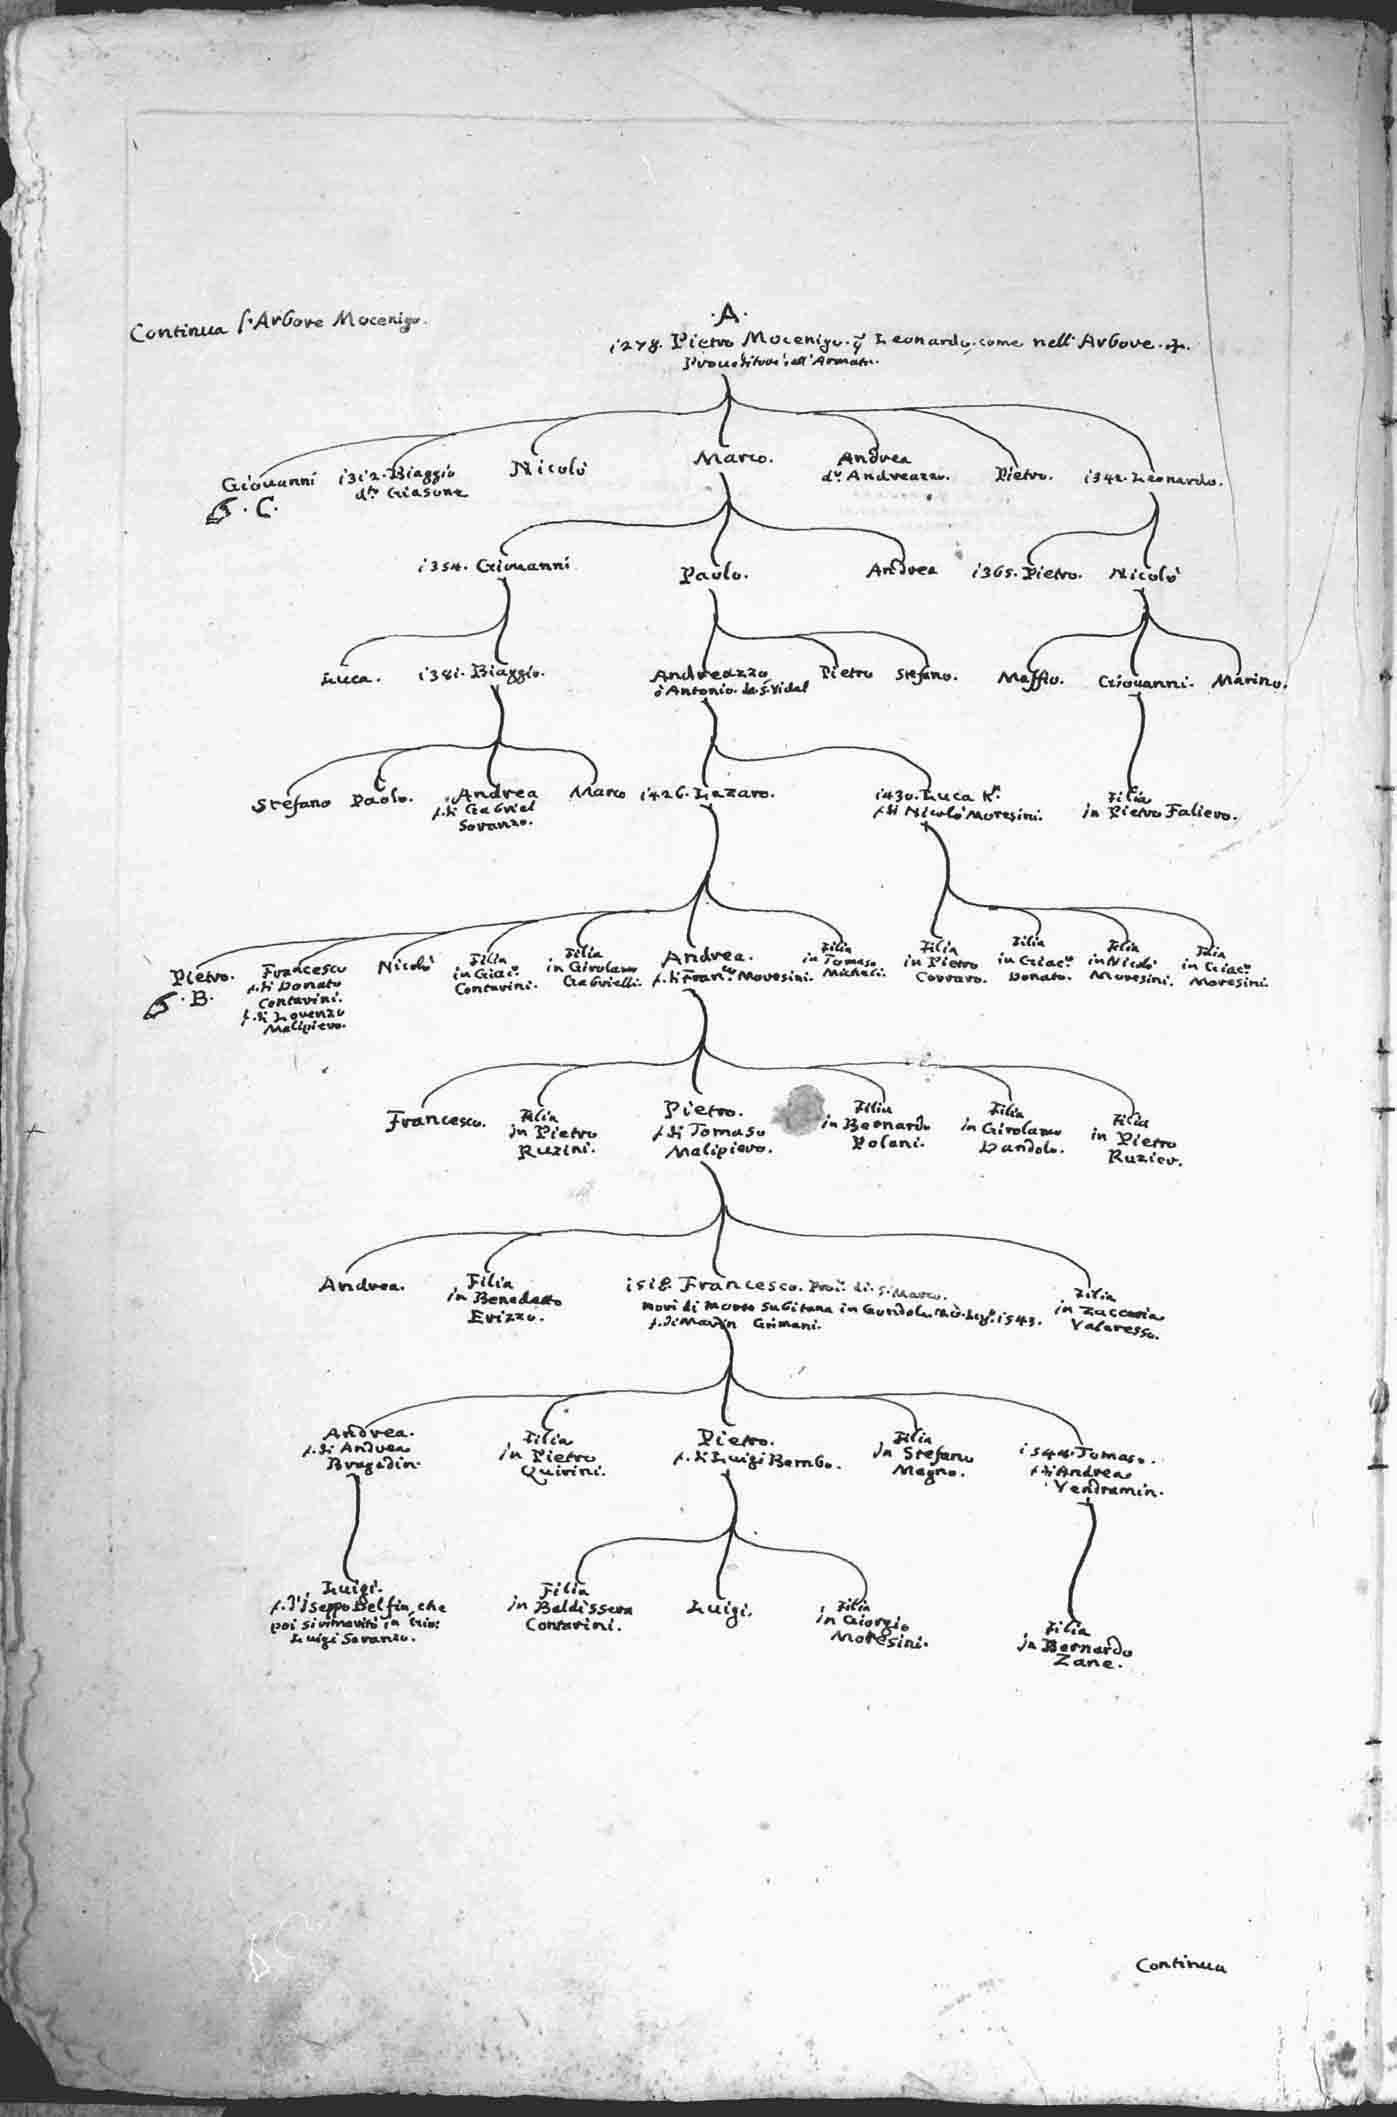 Continua l'Arbore Mocenigo.
·A·
1278. Pietro Mocenigo. q Leonardo, come nell' Arbore .
Proueditore dell' Armata.
Giouanni
1312. Biaggio
dto Giasone
Nicolò
Marco.
Andrea
do Andreazzo.
Pietro.
1342. Leonardo.
·C·
1354. Giouanni
Paolo.
Andrea
1365. Pietro.
Nicolò
Luca.
1381. Biaggio.
Andreazzo
ò Antonio. da S. Vidal
Pietro
Stefano.
Maffio.
Giouanni.
Marino.
Stefano
Paolo.
Andrea
f. di Gabriel
Soranzo.
Marco
1426. Lazaro.
1430. Luca Kr.
f. di Nicolò Moresini.
Filia
in Pietro Faliero.
Pietro.
·B·
Francesco
f. di Donato
Contarini.
f. di Lorenzo
Malipiero.
Nicolò
Filia
in Giaco.
Contarini.
Filia
in Girolamo
Gabrielli.
Andrea.
f. di Franco Moresini.
Filia
in Tomaso
Michali.
Filia
in Pietro
Corraro.
Filia
in Giaco.
Donato.
Filia
in Nicolò
Moresini.
Filia
in Giaco.
Moresini.
Francesco.
Filia
in Pietro
Ruzini.
Pietro.
f. di Tomaso
Malipiero.
Filia
in Bernardo
Polani.
Filia
in Girolamo
Dandolo.
Filia
in Pietro
Ruzier.
Andrea.
Filia
in Benedetto
Erizzo.
1518. Francesco. Procr. di S. Marco.
morì di morte subitana in Gondola 1543.
f. di Marin Grimani.
Filia
in Zaccaria
Valaresso.
Andrea.
f. di Andrea
Bragadin.
Filia
in Pietro
Quirini.
Pietro.
f. di Luigi Bembo.
Filia
in Stefano
Magno.
1544. Tomaso.
f. di Andrea
Vendramin.
Luigi.
f. d'Iseppo Delfin, che
poi si rimaritò in
Luigi Soranzo.
Filia
in Baldissera
Contarini.
Luigi.
Filia
in Giorgio
Moresini.
Filia
in Bernardo
Zane.
Continua